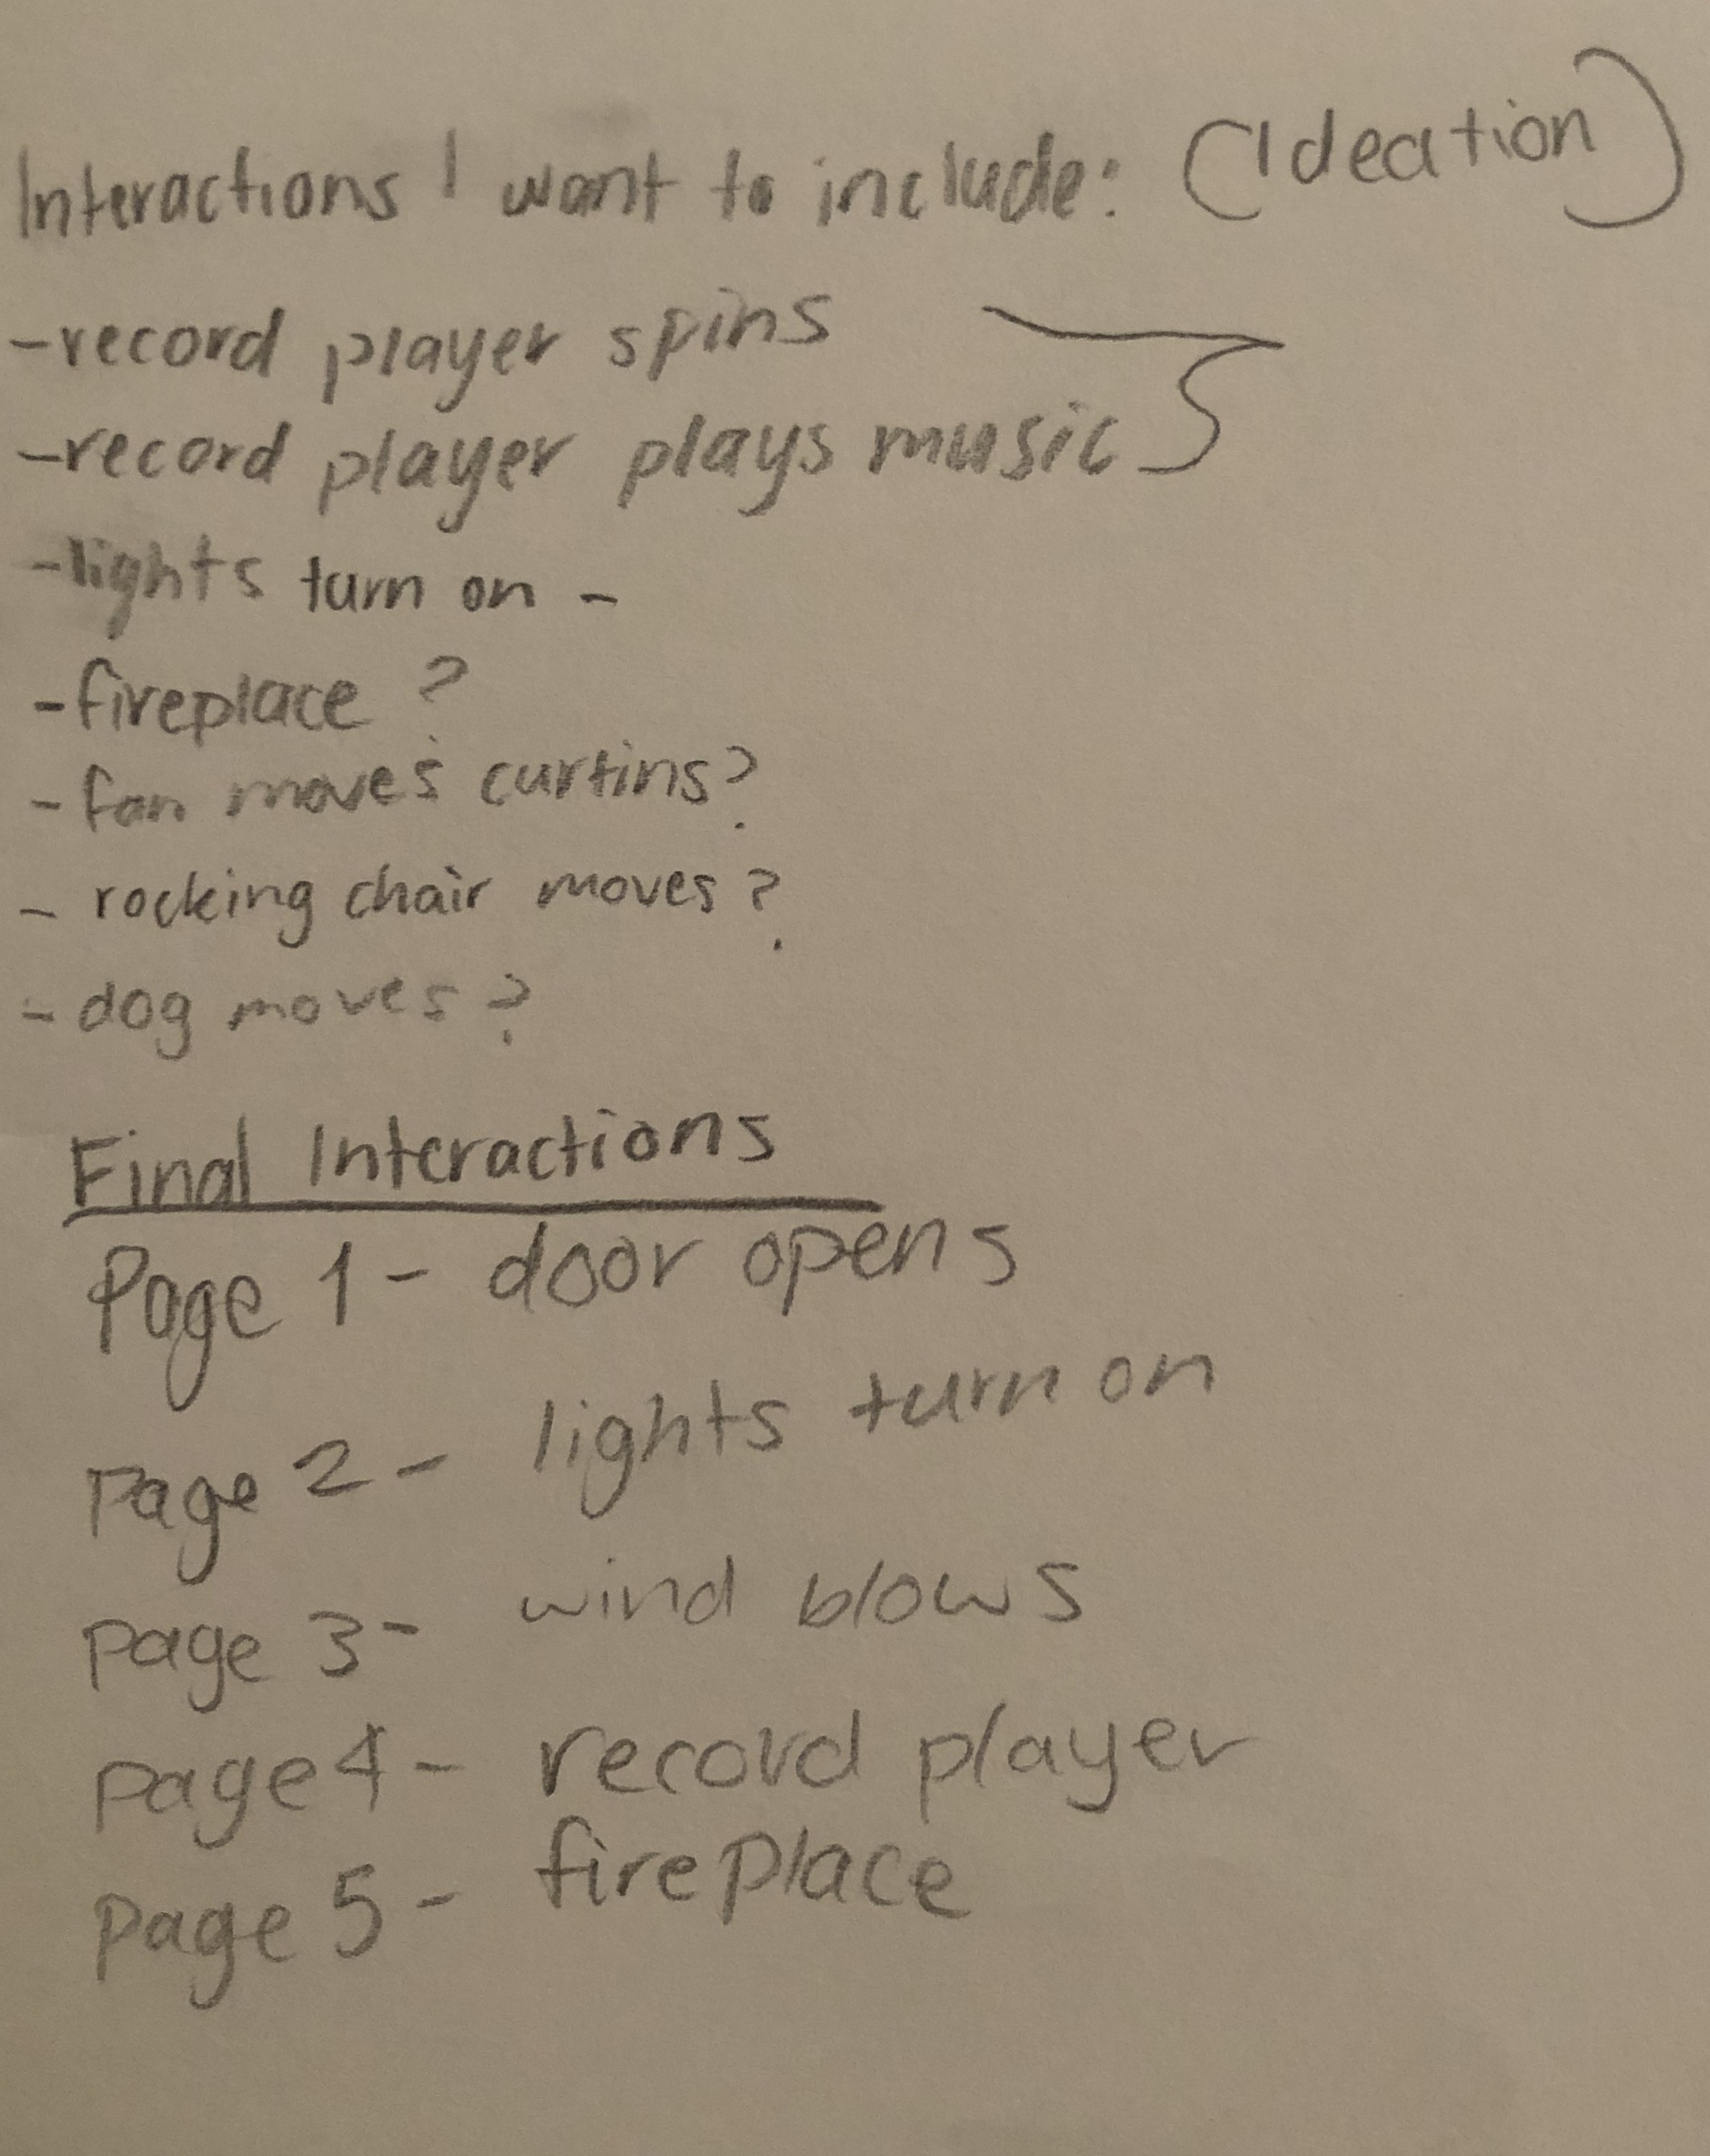 Interactions I want to include: (Ideation)
-record player spins
-record player plays music
-lights turn on -
-fireplace ?
-fan moves curtins?
- rocking chair moves?
- dog moves?
Final Interactions
Page 1- door opens
Page 2- lights turn on
page 3- wind blows
page 4- record player
page 5- fireplace